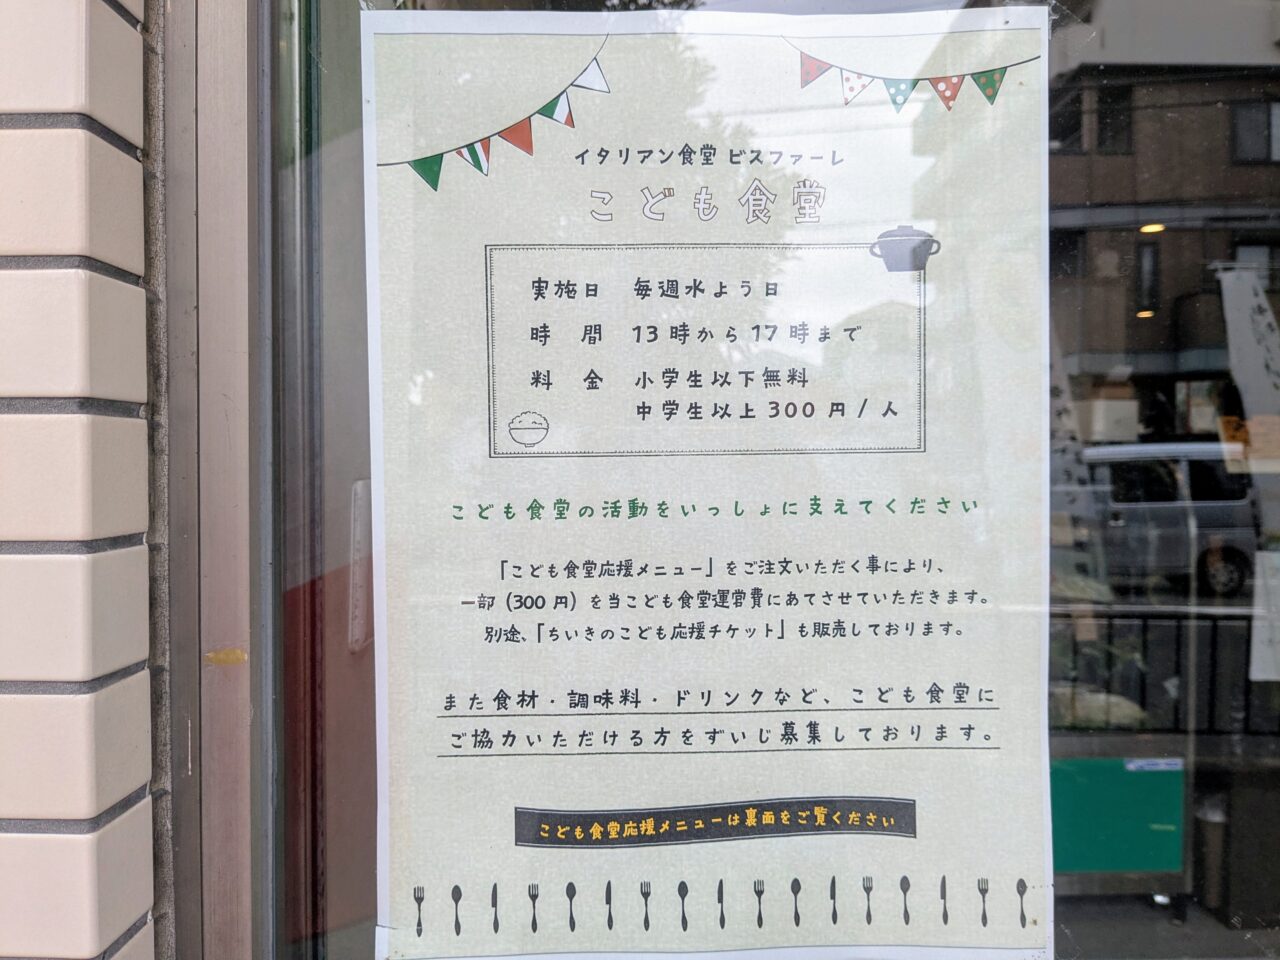 イタリアン食堂 ビスファーレ
こども食堂
実施日 毎週水よう日
時間 13時から17時まで
料金 小学生以下無料
中学生以上300円/人
こども食堂の活動をいっしょに支えてください
「こども食堂応援メニュー」をご注文いただく事により、
一部（300円）を当こども食堂運営費にあてさせていただきます。
別途、「ちいきのこども応援チケット」も販売しております。
また食材・調味料・ドリンクなど、こども食堂に
ご協力いただける方をずいじ募集しております。
こども食堂応援メニューは裏面をご覧ください